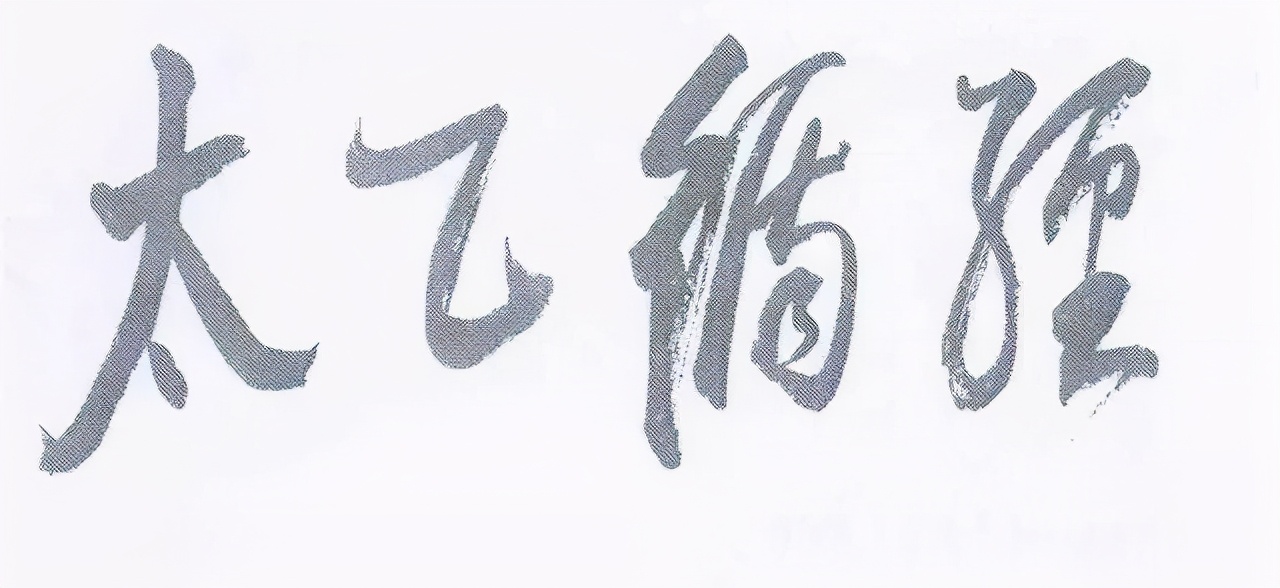 太乙循經